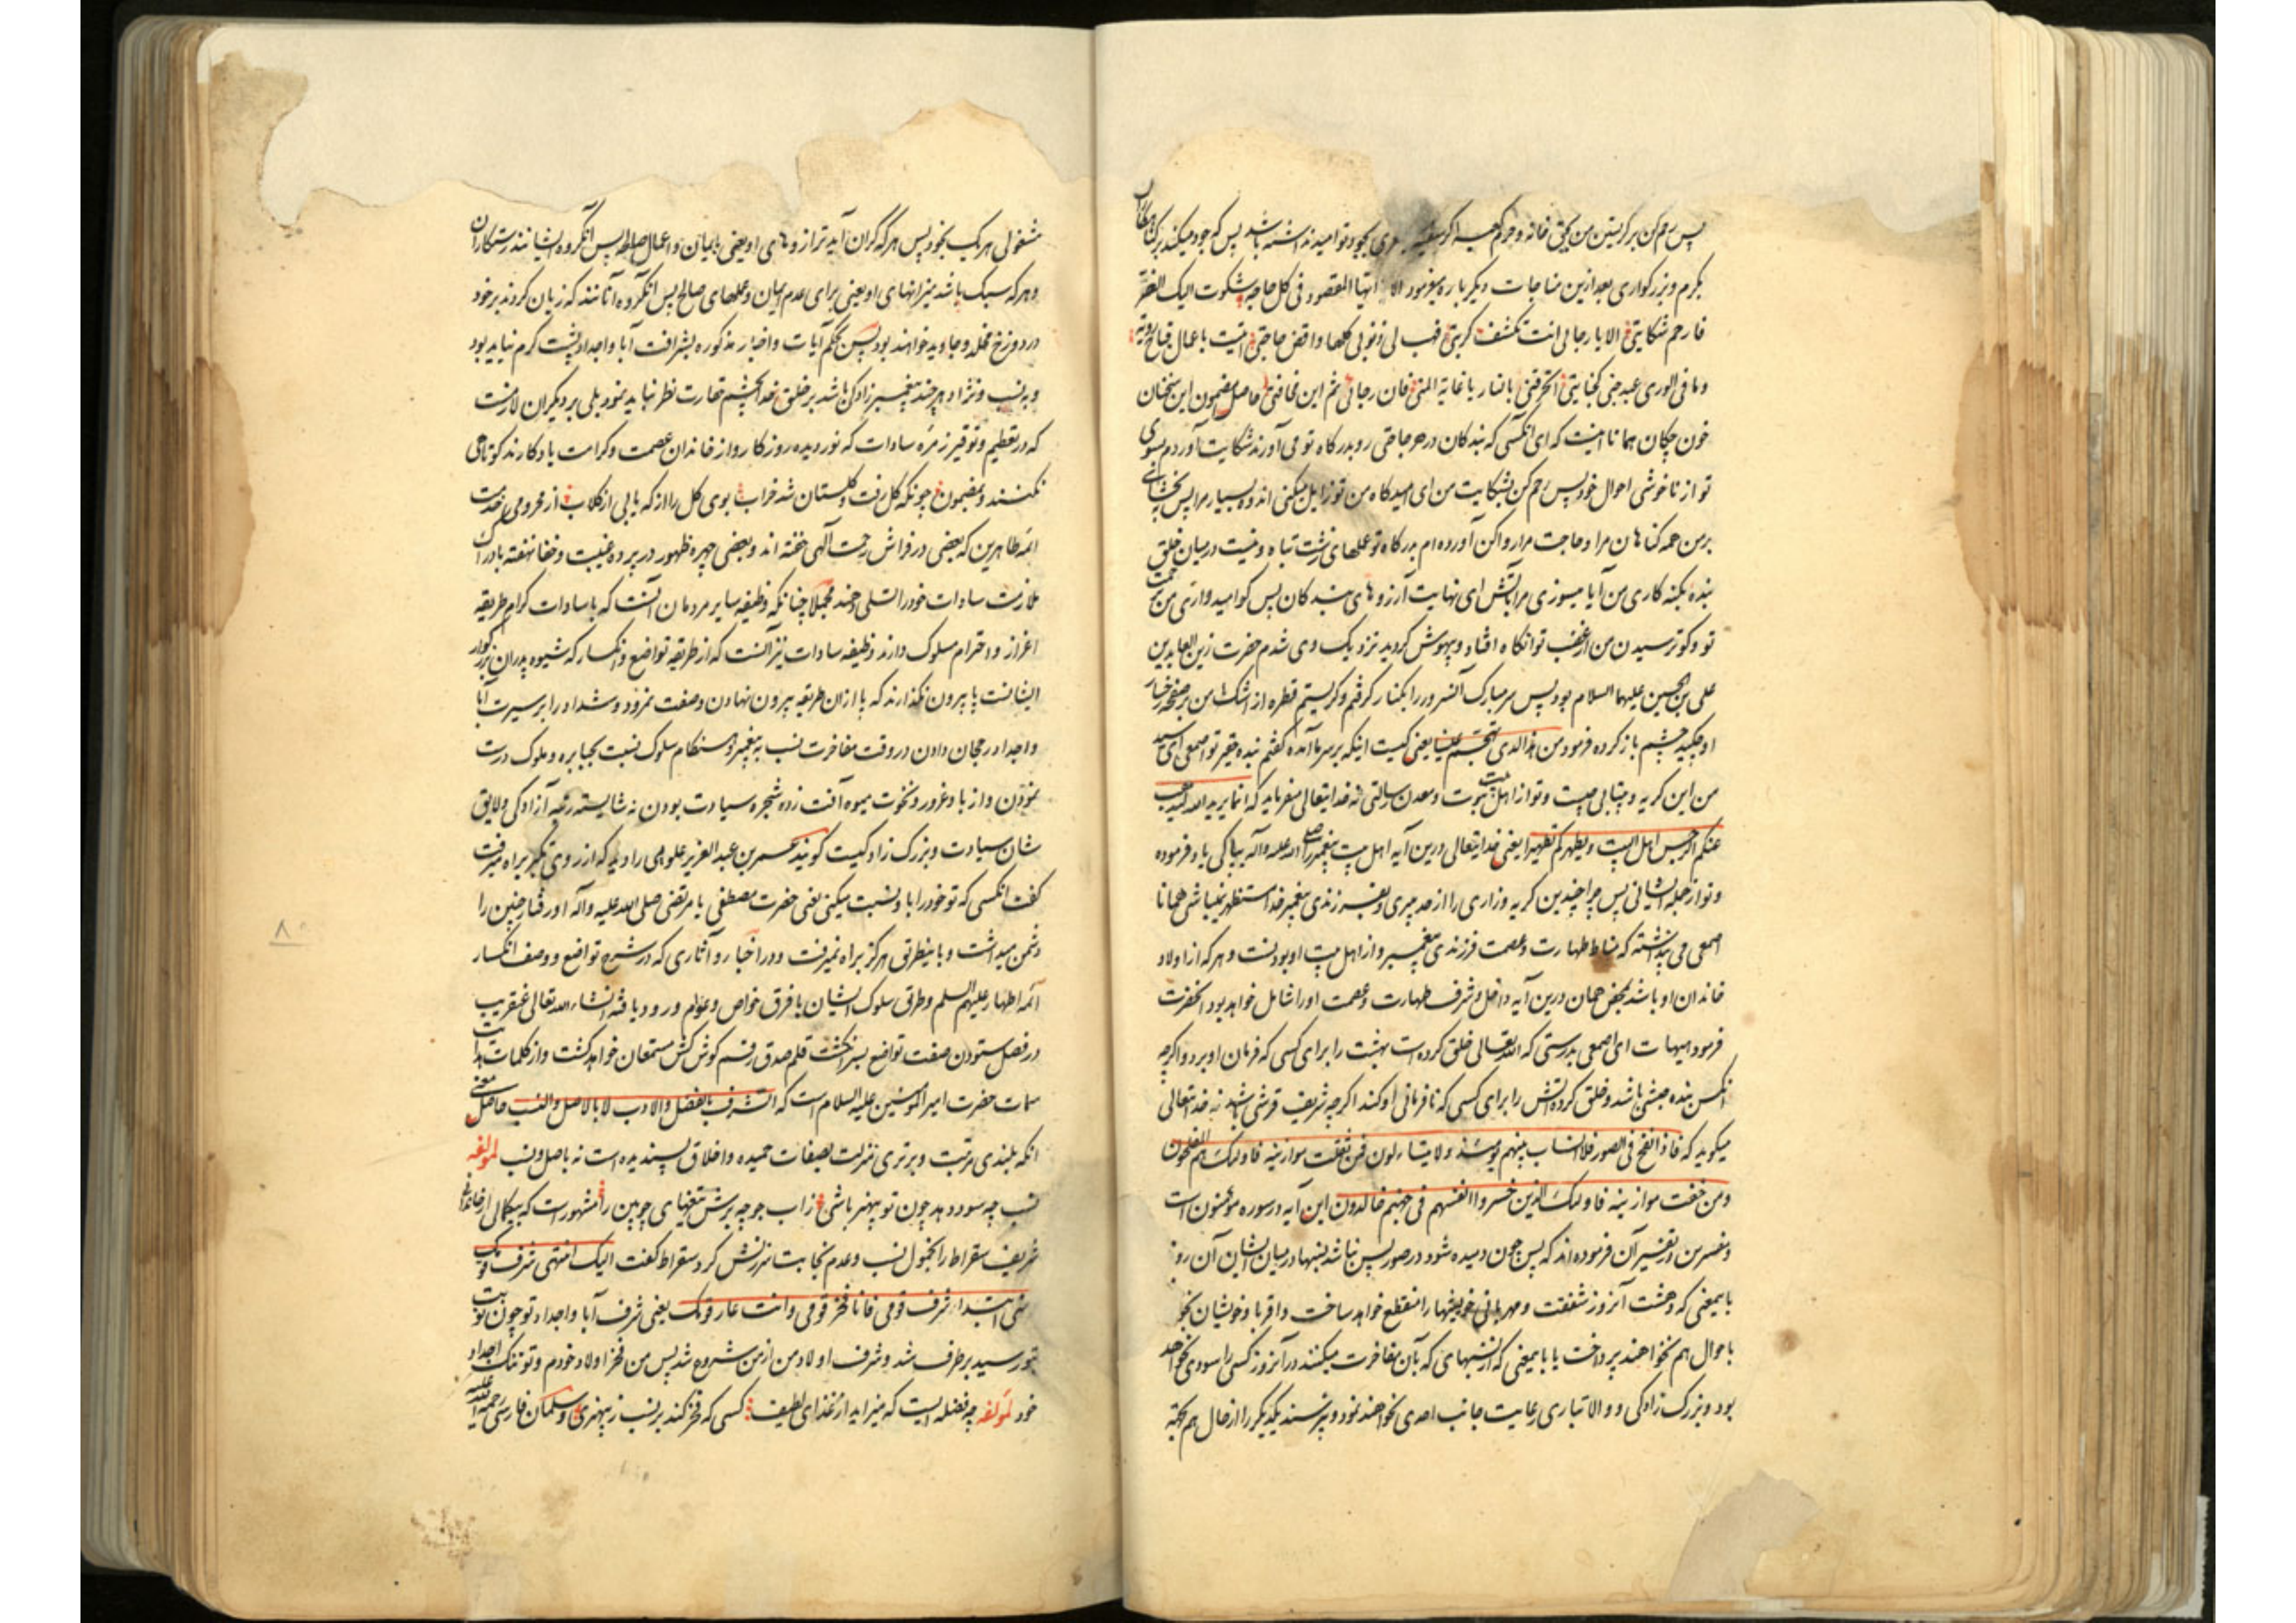 پس رحم کن بر کریستن من بحق خانه و حرم کعبه اگر سفیه بجود تو امید نداشته باشد پس که جود میکند بر کناهکاران
بکرم و بزرکواری بعد ازین مناجات دیکر باره میفرمود الا ایها المقصود فی کل حاجه شکوت الیک الضر
فارحم شکایتی الا یا رجائی انت تکشف کربتی فهب لی ذنوبی کلها واقض حاجتی اتیت باعمال قباح ردیه
وما فی الوری عبد جنی کجنایتی اتحرقنی بالنار یا غایة المنی فاین رجائی ثم این مخافتی حاصل مضمون این سخنان
خون چکان همانا اینست که ای انکسی که بندکان در هر حاجتی رو بدرکاه تو می آورند شکایت آوردم بسوی
تو از ناخوشی احوال خود پس رحم کن بشکایت من ای امیدکاه من تو زایل میکنی اندوه بسیار مرا پس ببخشای
بر من همه کناهان مرا و حاجت مرا روا کن آورده ام بدرکاه تو عملهای زشت تباه و نیست در میان خلق
بنده بکنه کاری من آیا میسوزی مرا بآتش ای نهایت آرزوهای بندکان پس کو امیدواری من برحمت
تو و کو ترسیدن من از غضب تو انکاه افتاد و بیهوش کردید نزدیک وی شدم حضرت زین العابدین
علی بن الحسین علیهما السلام بود پس سر مبارک آنسرور را بکنار کرفتم و کریستم قطره از اشک من بر صفحه رخسار
او چکید چشم باز کرده فرمود من هذا الذی تهجم علینا یعنی کیست اینکه بر سر ما آمده کفتم بنده حقیر تو اصمعی ای سید
من این کریه و بیتابی چیست و تو از اهل بیت نبوت و معدن رسالتی نه خدایتعالی میفرماید که انما یرید الله لیذهب
عنکم الرجس اهل البیت و یطهرکم تطهیرا یعنی خدایتعالی درین آیه اهل بیت پیغمبر را صلی الله علیه واله بپاکی یاد فرموده
و تو از جمله ایشانی پس چرا چندین کریه و زاری را از حد میبری و بفرزندی پیغمبر خدا مستظهر نمیباشی همانا
اصمعی می پنداشته که مناط طهارت و عصمت فرزندی پیغمبر و از اهل بیت او بودنست و هر که از اولاد
خاندان او باشد بمحض همان درین آیه داخل و شرف طهارت و عصمت او را شامل خواهد بود انحضرت
فرمود هیهات ای اصمعی بدرستی که الله تعالی خلق کرده است بهشت را برای کسی که فرمان او برد و اکرچه
انکس بنده حبشی باشد و خلق کرده آتش را برای کسی که نافرمانی او کند اکرچه شریف قرشی باشد نه خدایتعالی
میکوید که فاذا نفخ فی الصور فلا انساب بینهم یومئذ ولا یتساءلون فمن ثقلت موازینه فاولئک هم المفلحون
ومن خفت موازینه فاولئک الذین خسروا انفسهم فی جهنم خالدون این آیه در سوره مؤمنون است
و مفسرین در تفسیر آن فرموده اند که پس چون دمیده شود در صور پس نباشد نسبها در میان ایشان آن روز
بایمعنی که دهشت آنروز شفقت و مهربانی خویشیها را منقطع خواهد ساخت و اقربا و خویشان بخود
باحوال هم نخواهند پرداخت یا بایمعنی که از نسبهائی که بآن مفاخرت میکنند در آنروز کسی را سودی نخواهد
بود و بزرک زادکی و والاتباری رعایت جانب احدی نخواهند نمود و نپرسند یکدیکر را از حال هم بجهة
مشغولی هر یک بخود پس هر که کران آید ترازوهای او یعنی بایمان و اعمال صالحه پس آنکروه ایشانند رستکاران
و هر که سبک باشد میزانهای او یعنی برای عدم ایمان و عملهای صالح پس آنکروه آنانند که زیان کردند بر خود
در دوزخ مخلد و جاوید خواهند بود پس بحکم آیات و اخبار مذکوره بشرافت آبا و اجداد پشت کرم نباید بود
و به نسب و نژاد هر چند پیغمبر زادکی باشد بر خلق خدا بچشم حقارت نظر نباید نمود بلی بر دیکران لازمست
که در تعظیم و توقیر زمره سادات که نور دیده روزکار و از خاندان عصمت و کرامت یادکارند کوتاهی
نکنند و بمضمون چونکه کل رفت و کلستان شد خراب بوی کل را از که یابی از کلاب از محرومی خدمت
ائمه طاهرین که بعضی در فراش رحمت آلهی خفته اند و بعضی چهره ظهور در پرده غیبت و خفا نهفته بادراک
ملازمت سادات خود را تسلی دهند مجملا چنانکه وظیفه سایر مردمان آنست که با سادات کرام طریقه
اعزاز و احترام مسلوک دارند وظیفه سادات نیز آنست که از طریقه تواضع و انکسار که شیوه پدران بزرکوار
ایشانست پا بیرون نکذارند که پا ازان طریقه بیرون نهادن و صفت نمرود و شداد را بر سیرت آبا
و اجداد رجحان دادن در وقت مفاخرت نسب به پیغمبر و هنکام سلوک نسبت بجبابره و ملوک درست
نمودن و از باد غرور و نخوت میوه آفت زده شجره سیادت بودن نه شایسته رتبه آزادکی و لایق
شان سیادت و بزرک زادکیست کویند عمر بن عبدالعزیز علوی را دید که از روی تکبر براه میرفت
کفت انکسی که تو خود را باو نسبت میکنی یعنی حضرت مصطفی یا مرتضی صلی الله علیه و آله او رفتار چنین را
دشمن میداشت و باینطریق هرکز براه نمیرفت و در اخبار و آثاری که در شرح تواضع و وصف انکسار
ائمه اطهار علیهم السلم و طریق سلوک ایشان با فرق خواص و عوام ورود یافته انشاء الله تعالی عنقریب
در فصل ستودن صفت تواضع بسر انکشت قلم صدق رقم کوش کش مستمعان خواهد کشت و از کلمات هدایت
سمات حضرت امیر المومنین علیه السلام است که الشرف بالفضل والادب لا بالاصل والنسب حاصل معنی
انکه بلندی مرتبت و برتری منزلت بصفات حمیده و اخلاق پسندیده است نه باصل و نسب لمولفه
نسب چه سود دهد چون تو بیهنر باشی ز آب جو چه برش تیغهای چوبین را مشهور است که بیکمالی از خاندانی
شریف سقراط را بخمول نسب و عدم نجابت سرزنش کرد سقراط کفت الیک انتهی شرف قومک
و منی ابتدا شرف قومی فانا فخر قومی وانت عار قومک یعنی شرف آبا و اجداد تو چون نوبت
بتو رسید برطرف شد و شرف اولاد من از من شروع شد پس من فخر اولاد خودم و تو ننک اجداد
خود لمولفه چه فضله ایست که میزاید از غذای لطیف کسی که فخر کند بر نسب ز بیهنری و سلمان فارسی رحمة الله علیه